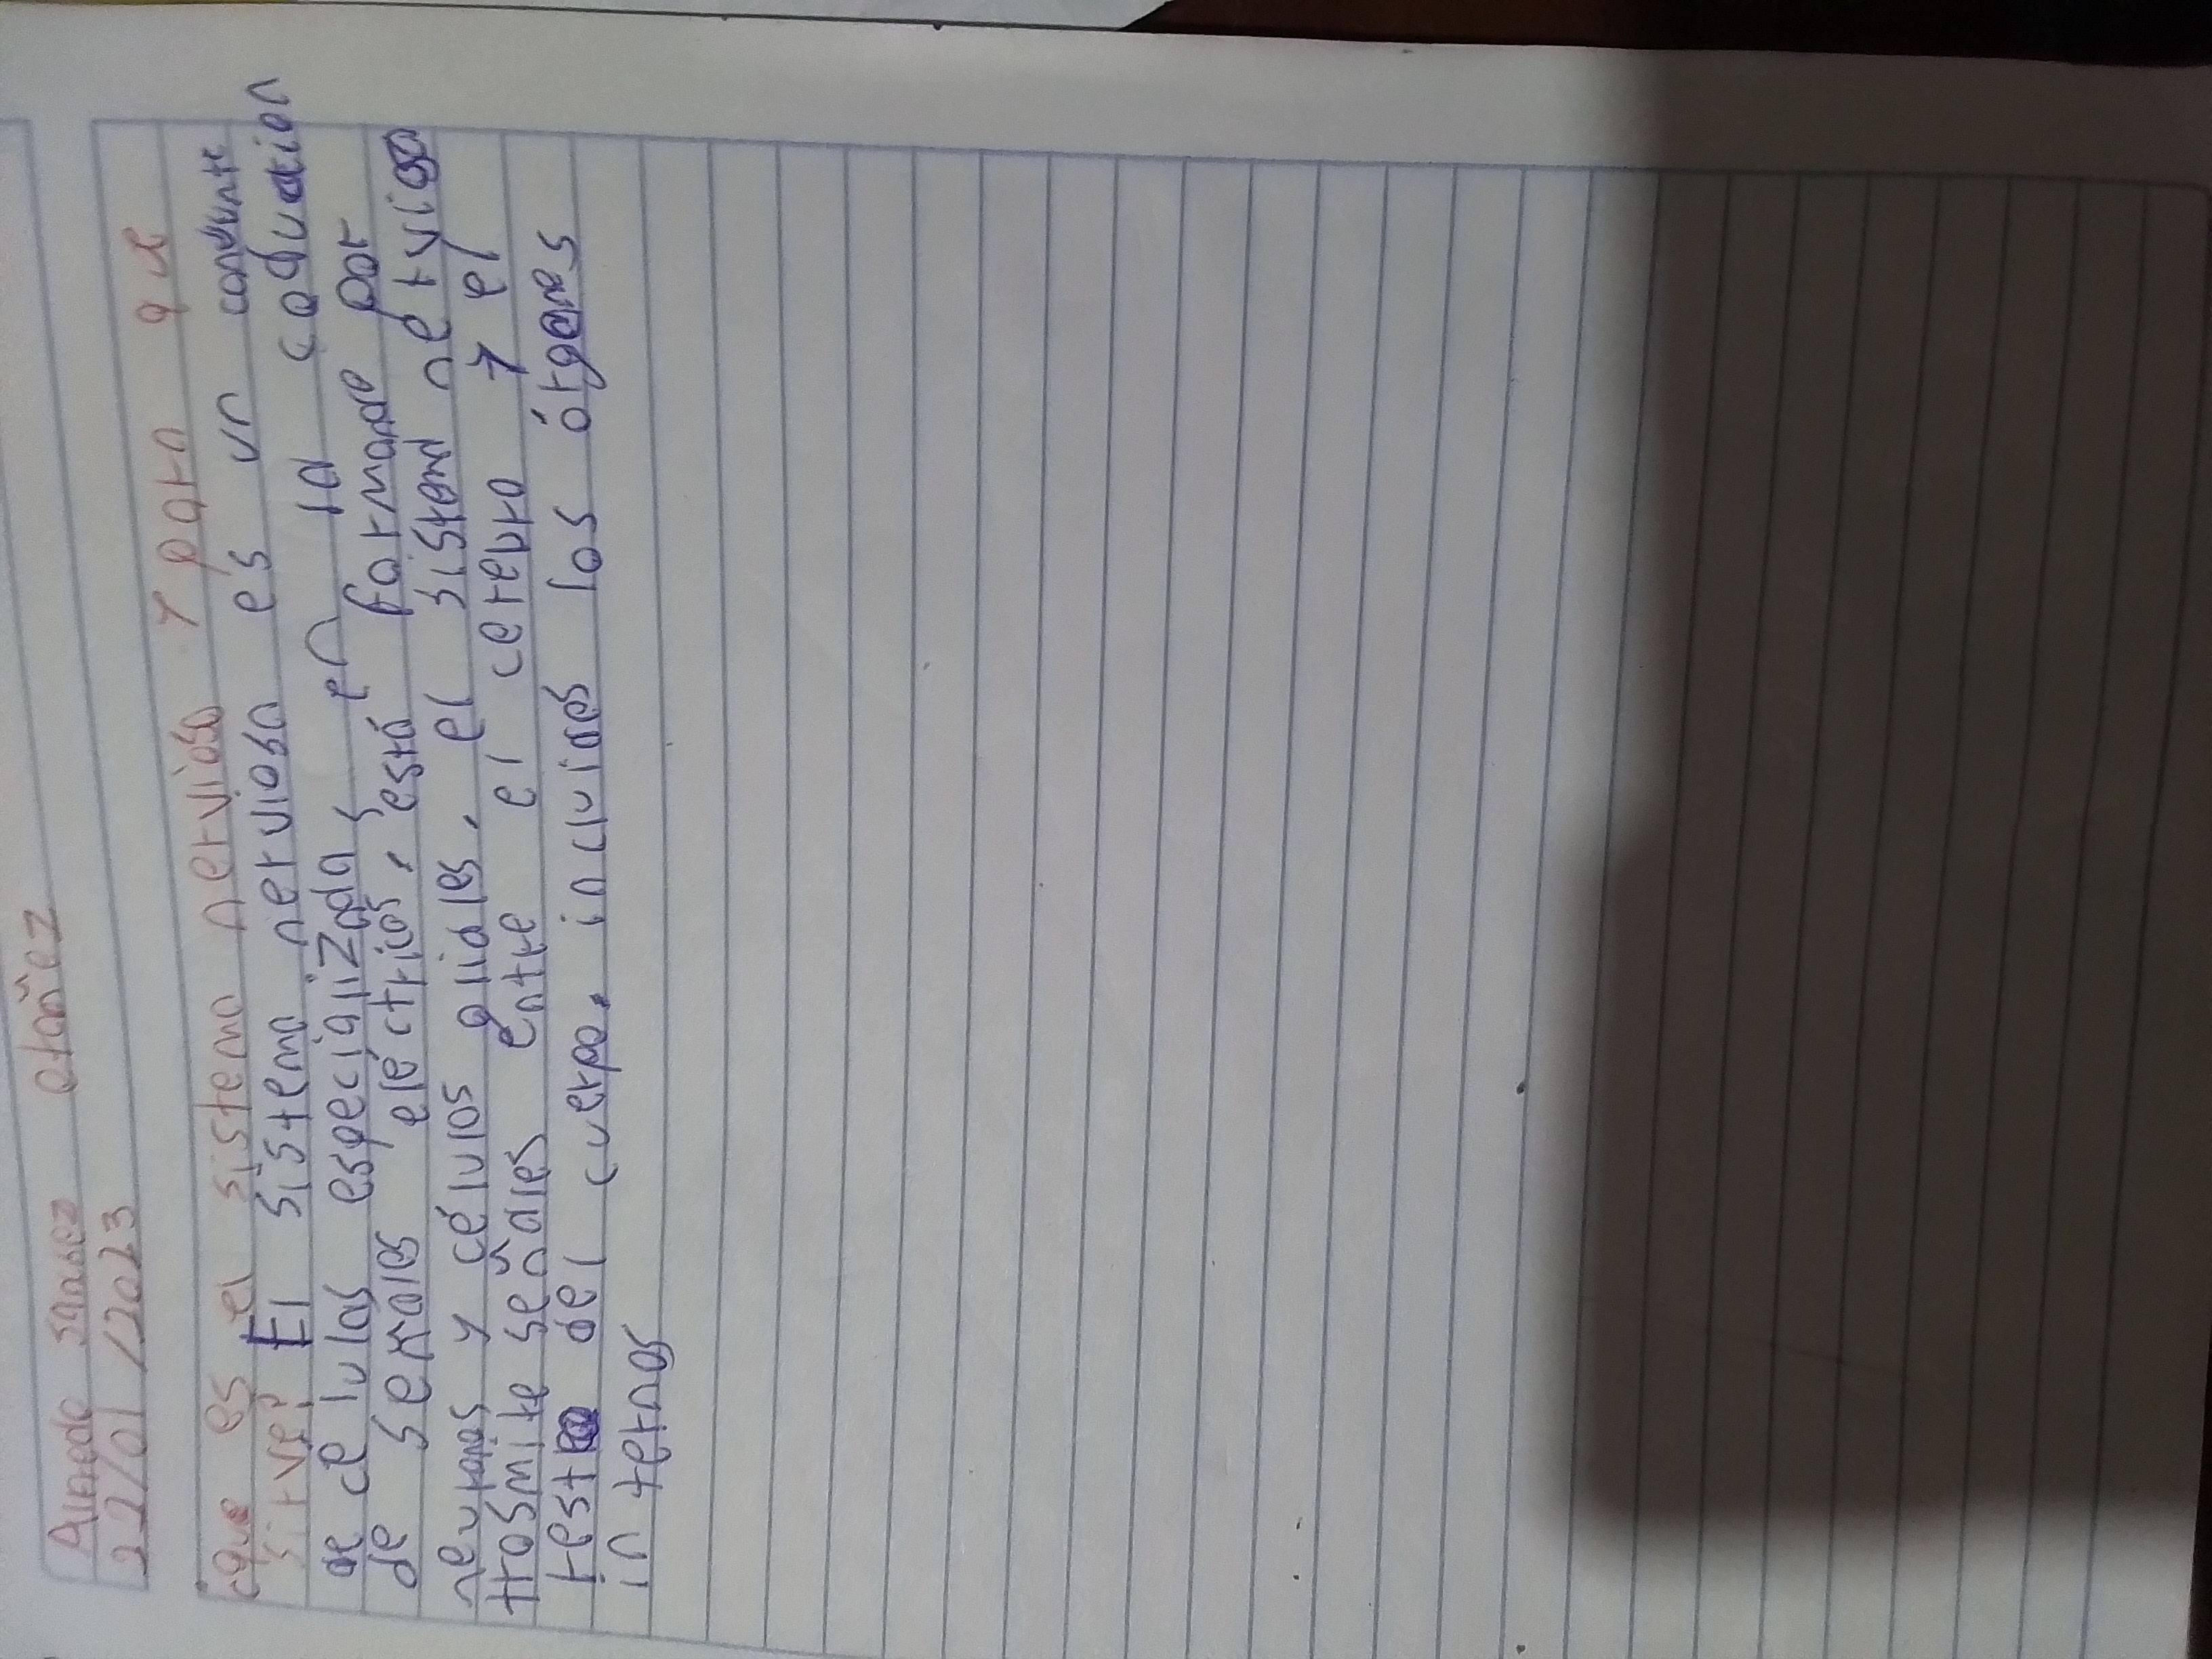 otañez
22/01/2023
¿que es el sistema nervioso y para que
sirve? El sistema nervioso es un
de celulas especializadas en la
de señales eléctricos, está formado por
neuronas y células gliales, el sistema nervioso
trasmite señales entre el cerebro y el
resto del cuerpo, incluidos los órganos
internos